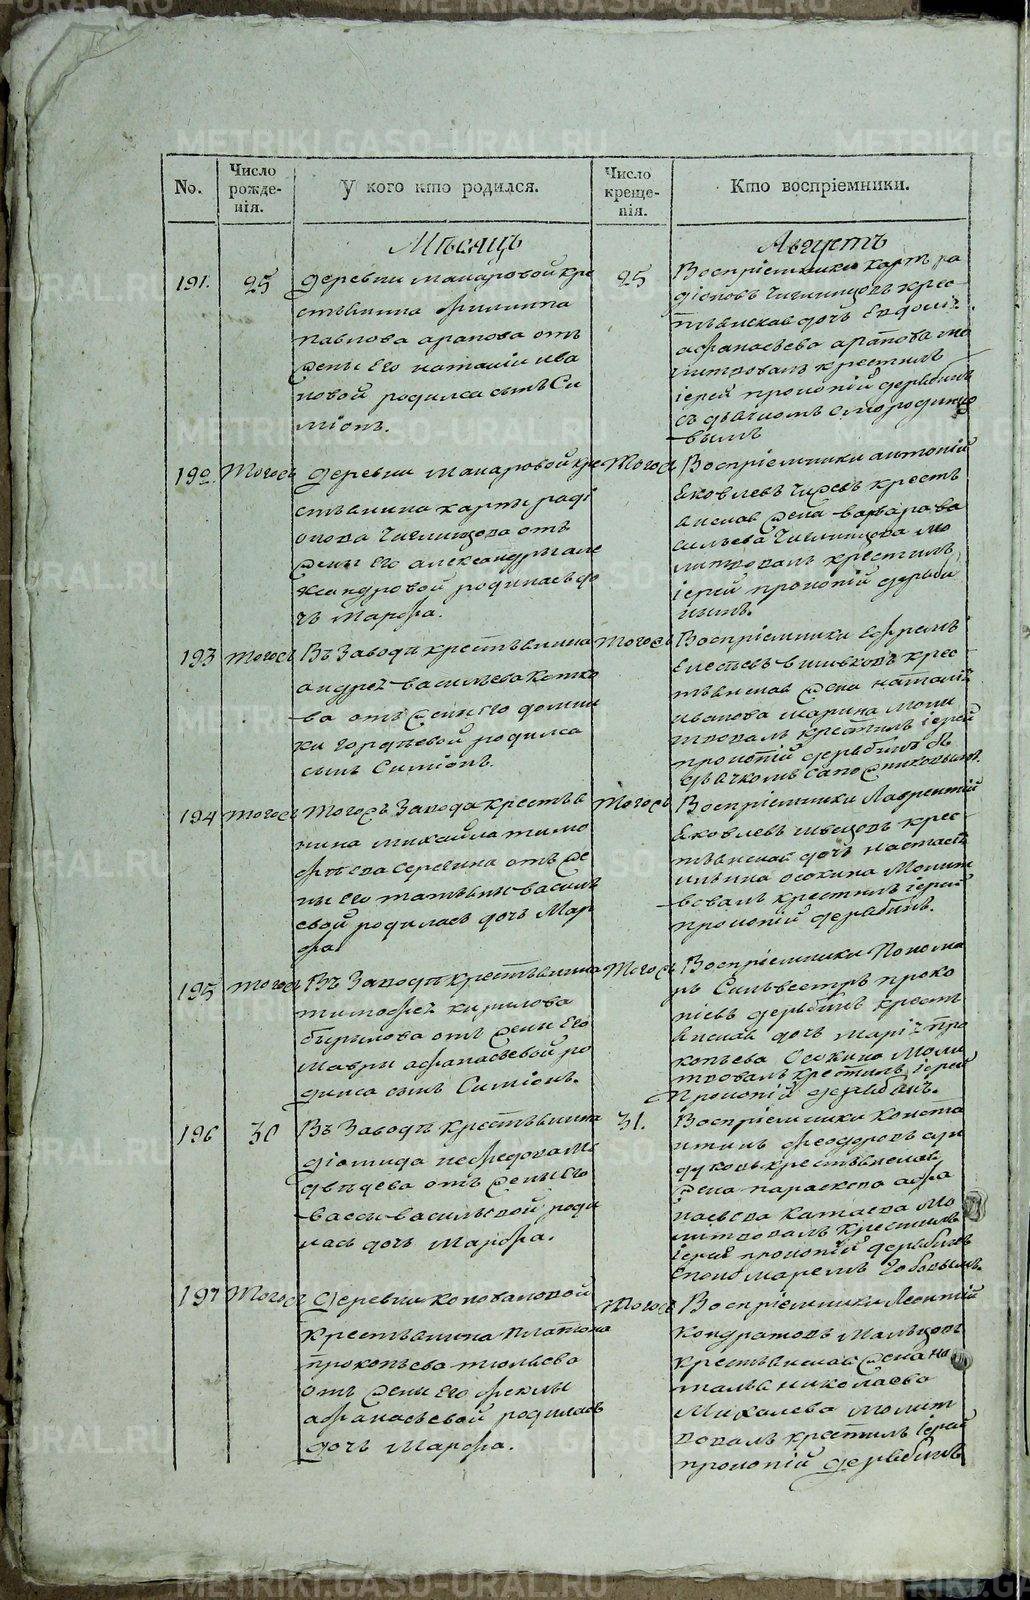 No.
Число рожде-нія.
У кого кто родился.
Число креще-нія.
Кто воспріемники.
Мѣсяцъ
Августъ
191.
25
деревни макаровой кре
стьянина филиппа
павлова арапова отъ
жены его наталіи ива
новой родился сынъ Си
міонъ.
25
Воспріемники карпъ ра
діоновъ чиглинцовъ крес
тьянская дочь Евдокі:
афанасьева арапова мо
литвовалъ крестилъ
іерей прокопій дерябинъ
съ дьячкомъ смородинцо
вымъ
192.
Тогожъ
деревни макаровой кре
стьянина карпа раді
онова Чиглинцова отъ
жены его александры але
ксандровой родилась до
чь Марфа.
Тогож
Воспріемники антоній
Яковлевъ крестъ
янская жена варвара ва
сильева Чиглинцова мо
литвовалъ крестилъ
іерей прокопій деряби
нымъ.
193
тогожъ
Въ Заводѣ крестьянина
андрей васильева
ва отъ жены его домни
ки гордѣевой родился
сынъ Симіонъ.
тогожъ
Воспріемники Ефремъ
крес
тьянская жена наталія
иванова марина моли
твовалъ крестилъ іерей
прокопій дерябинъ съ
дьячкомъ сапожниковымъ.
194
тогожъ
Тогожъ Завода крестья
нина михайла тимо
фѣева отъ же
ны его татьяны василь
евой родилась дочь Мар
фа.
тогожъ
Воспріемники Лаврентій
Яковлевъ швецовъ крес
тьянская дочь настасья
ильина осокина Молит
вовалъ крестилъ іерей
прокопій дерябинъ.
195
тогожъ
Въ Заводѣ крестьянина
тимофей кирилова
бырилова отъ жены его
мавры афанасьевой ро
дился сынъ Симіонъ.
Тогожъ
Воспріемники Понома
рь Сильвестръ проко
піевъ дерябинъ крестъ
янская дочь Марія про
копьева Осокина Моли
твовалъ крестилъ іерей
Прокопій дерябинъ.
196
30
Въ Заводѣ крестьянина
діомида нефедова ме
двѣдева отъ жены его
вассы васильевой роди
лась дочь Марфа.
31.
Воспріемники Конста
нтинъ феодоровъ
крестьянская
жена параскева афа
насьева катаева Мо
литвовалъ крестилъ
іерей прокопій дерябинъ
с пономаремъ
197
Тогожъ
Деревни коноваловой
крестьянина платона
прокопьева тюльева
отъ жены его феклы
афанасьевой родилась
дочь Марфа.
Тогож
Воспріемники Леонтій
кондратовъ Мальцовъ
крестьянская жена на
талья николаева
Михалева молит
вовалъ крестилъ іерей
прокопій дерябинъ
METRIKI.GASO-URAL.RU